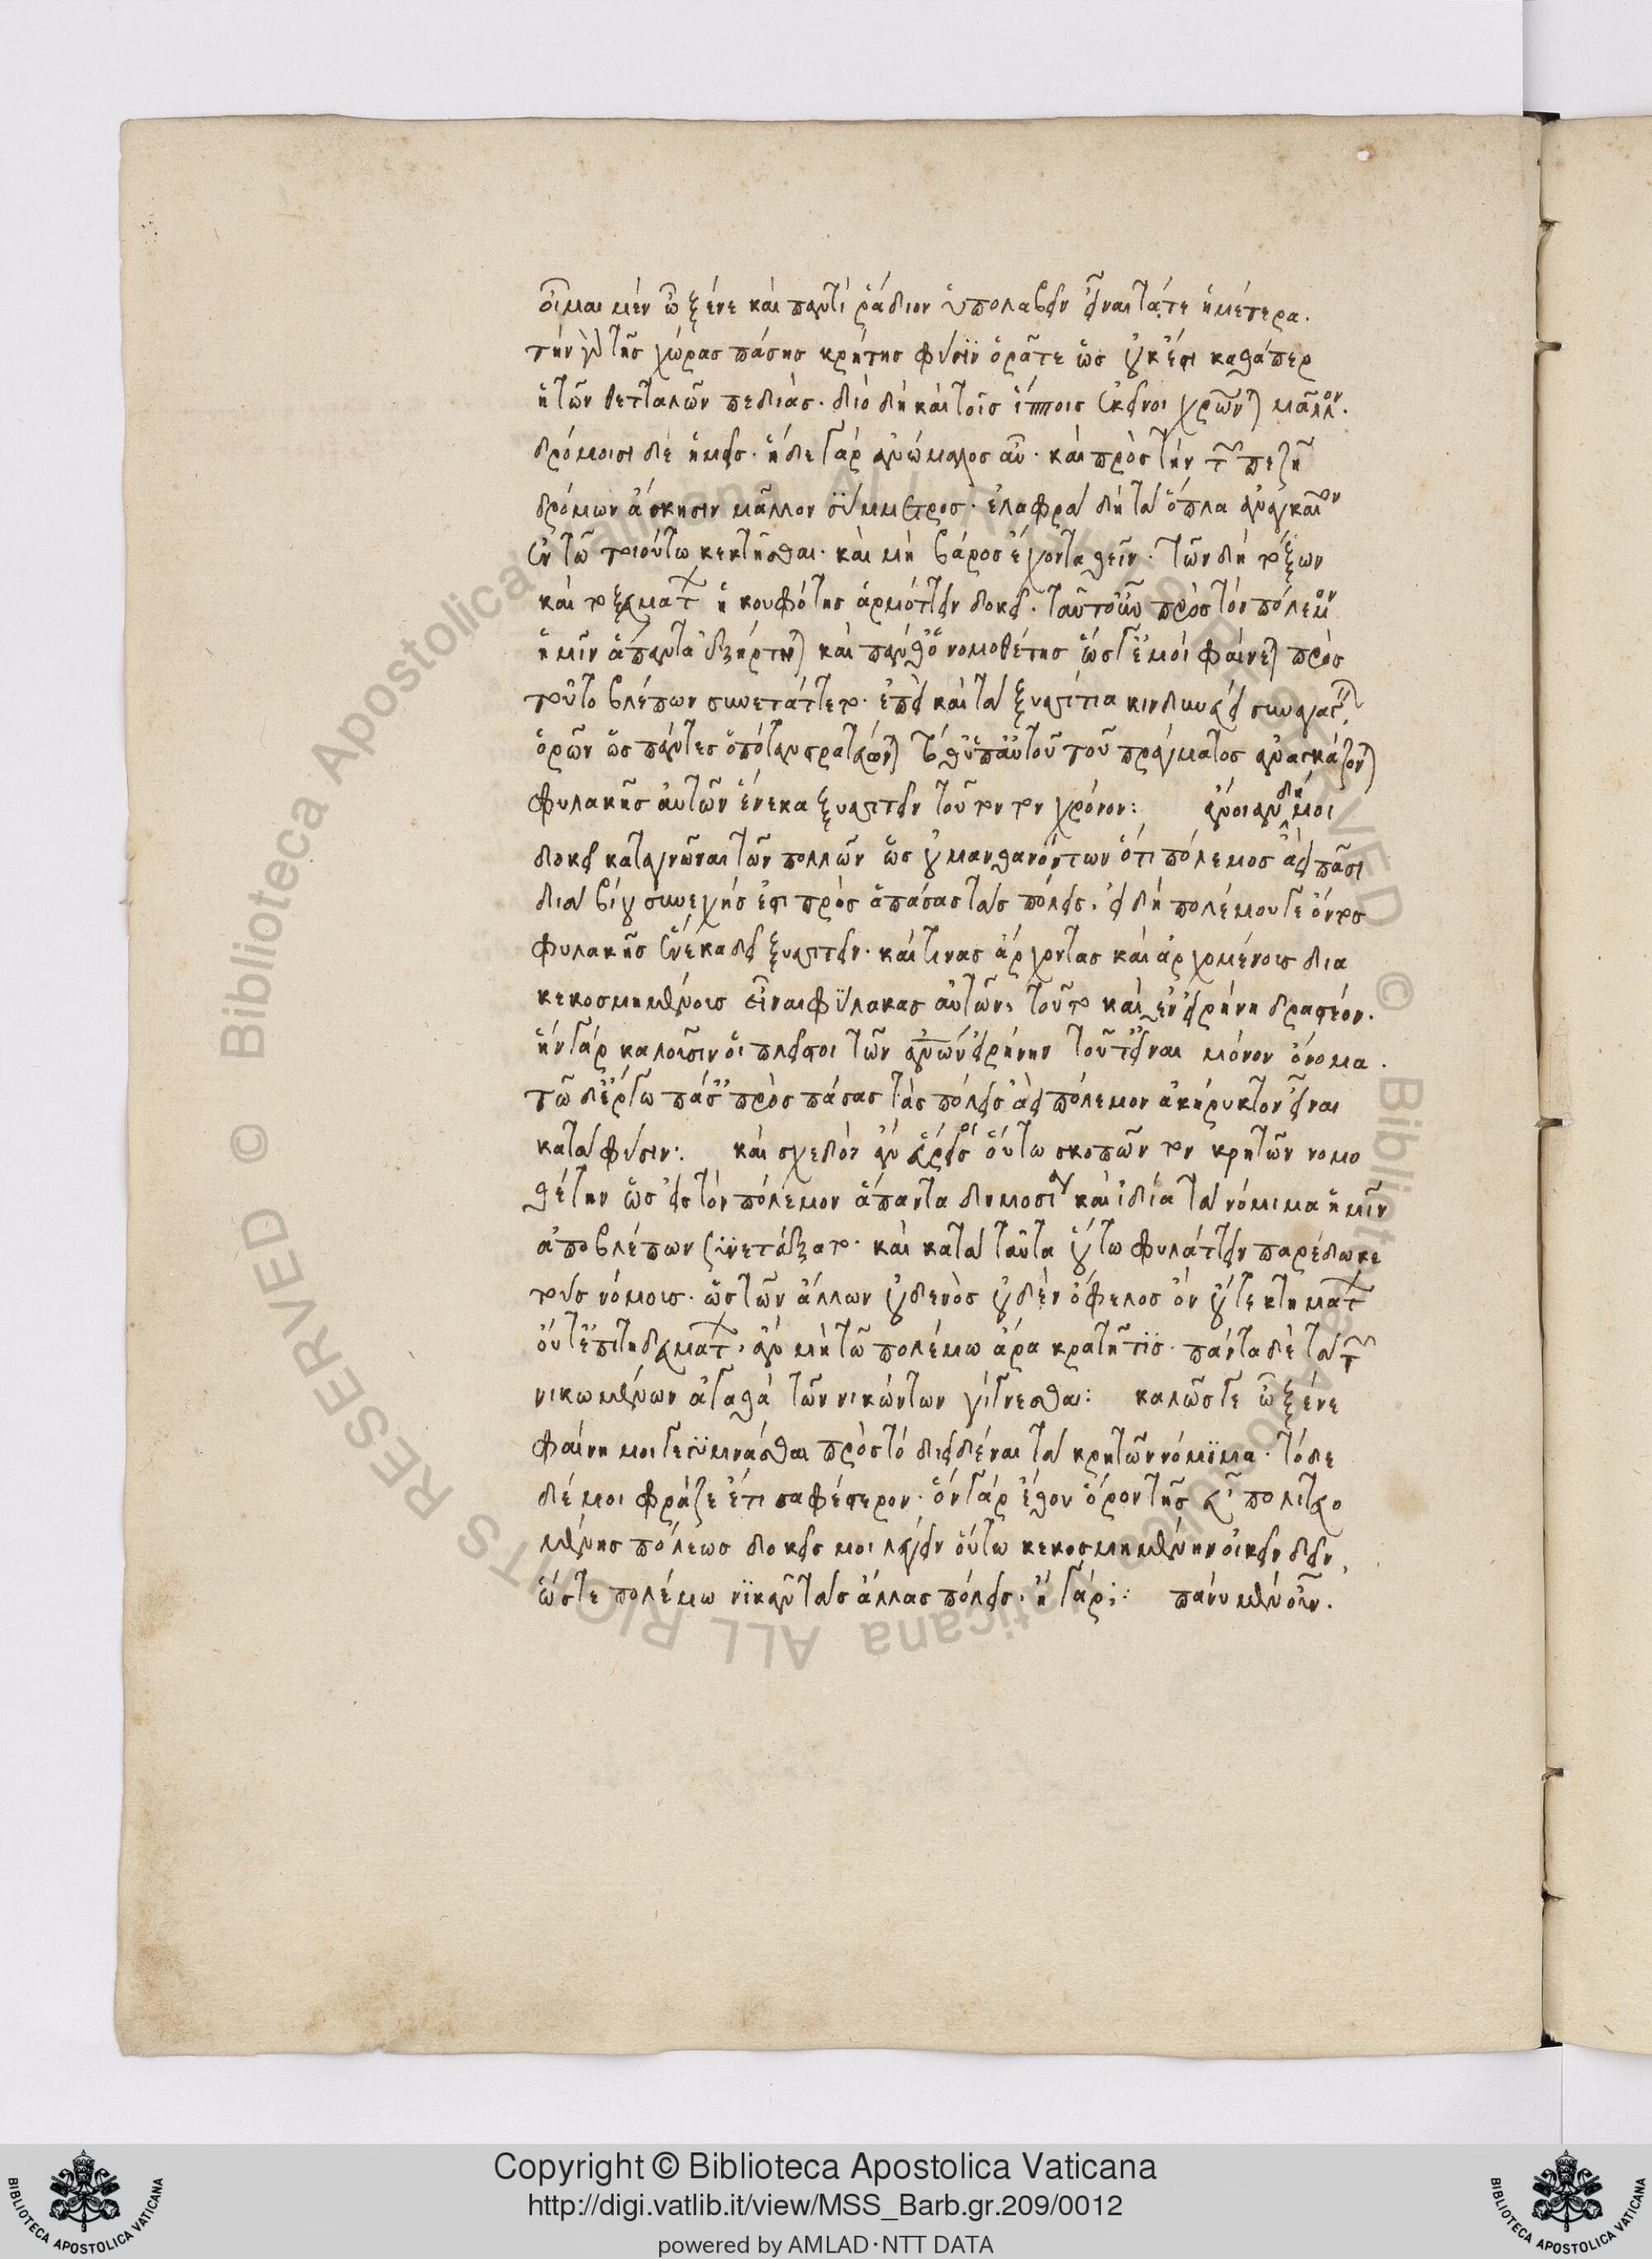 οἶμαι μὲν ὦ ξένε καὶ παντὶ ῥάδιον ὑπολαβεῖν εἶναι τά τε ἡμέτερα.
τὴν γὰρ τῆς χώρας πάσης κρήτης φύσϊν ὁρᾶτε ὡς οὐκ ἔστι καθάπερ
ἡ τῶν θετταλῶν πεδιὰς. διὸ δὴ καὶ τοῖς ἵπποις ἐκεῖνοι χρῶνται μᾶλλον.
δρόμοισι δὲ ἡμεῖς. ἥδε γὰρ ἀνώμαλος αὖ. καὶ πρὸς τὴν τῶν πεζῆ
δρόμων ἄσκησιν μᾶλλον σύμμετρος. ἐλαφρὰ δὴ τὰ ὅπλα ἀναγκαῖον
ἐν τῶ τοιούτω κεκτῆσθαι. καὶ μὴ βάρος ἔχοντα θεῖν. τῶν δὴ τόξων
καὶ τοξευμάτων ἡ κουφότης ἁρμόττειν δοκεῖ. ταῦτ' οὖν πρὸς τὸν πόλεμον
ἡμῖν ἅπαντα ἐξήρτηται καὶ πάνθ' ὁ νομοθέτης ὥς γ' ἐμοὶ φαίνεται πρὸς
τοῦτο βλέπων συνετάττετο. ἐπεὶ καὶ τὰ ξυσσίτια κινδυνεύει συναγαγεῖν,
ὁρῶν ὡς πάντες ὁπόταν στρατεύωνται τόθ' ὑπ' αὐτοῦ τοῦ πράγματος ἀναγκάζονται
φυλακῆς αὐτῶν ἕνεκα ξυσσιτεῖν τοῦτον τὸν χρόνον: ἄνοιαν δή μοι
δοκεῖ καταγνῶναι τῶν πολλῶν ὡς οὐ μανθανόντων ὅτι πόλεμος ἀεὶ πᾶσι
διὰ βίου συνεχής ἐστι πρὸς ἁπάσας τὰς πόλεις. εἰ δὴ πολέμου γε ὄντος
φυλακῆς ἕνεκα δεῖ ξυσσιτεῖν. καί τινας ἄρχοντας καὶ ἀρχομένους δια
κεκοσμημένους εἶναι φύλακας αὐτῶν, τοῦτο καὶ ἐν εἰρήνη δραστέον.
ἣν γὰρ καλοῦσιν οἱ πλεῖστοι τῶν ἀνθρώπων εἰρήνην τοῦτ' εἶναι μόνον ὄνομα.
τῶ δ' ἔργω πάσαις πρὸς πάσας τὰς πόλεις ἀεὶ πόλεμον ἀκήρυκτον εἶναι
κατὰ φύσιν: καὶ σχεδὸν ἀνευρήσεις οὕτω σκοπῶν τὸν κρητῶν νομο
θέτην ὡς εἰς τὸν πόλεμον ἅπαντα δημοσία καὶ ἰδία τὰ νόμιμα ἡμῖν
ἀποβλέπων συνετάξατο. καὶ κατὰ ταῦτα οὕτω φυλάττειν παρέδωκε
τοὺς νόμους. ὡς τῶν ἄλλων οὐδενὸς οὐδὲν ὄφελος ὂν οὔτε κτημάτων
οὔτ' ἐπιτηδευμάτων, ἂν μὴ τῶ πολέμω ἄρα κρατῆ τις. πάντα δὲ τὰ τῶν
νικωμένων ἀγαθὰ τῶν νικώντων γίγνεσθαι: καλῶς γε ὦ ξένε
φαίνη μοι γεγυμνάσθαι πρὸς τὸ διειδέναι τὰ κρητῶν νόμϊμα. τόδε
δέ μοι φράζε ἔτι σαφέστερον. ὃν γὰρ ἔθου ὅρον τῆς εὖ πολιτευο
μένης πόλεως δοκεῖς μοι λέγειν οὕτω κεκοσμημένην οἰκεῖν δεῖν,
ὥστε πολέμω νϊκᾶν τὰς ἄλλας πόλεις. ἦ γάρ;: πάνυ μὲν οὖν.
Copyright © Biblioteca Apostolica Vaticana
http://digi.vatlib.it/view/MSS_Barb.gr.209/0012
powered by AMLAD·NTT DATA